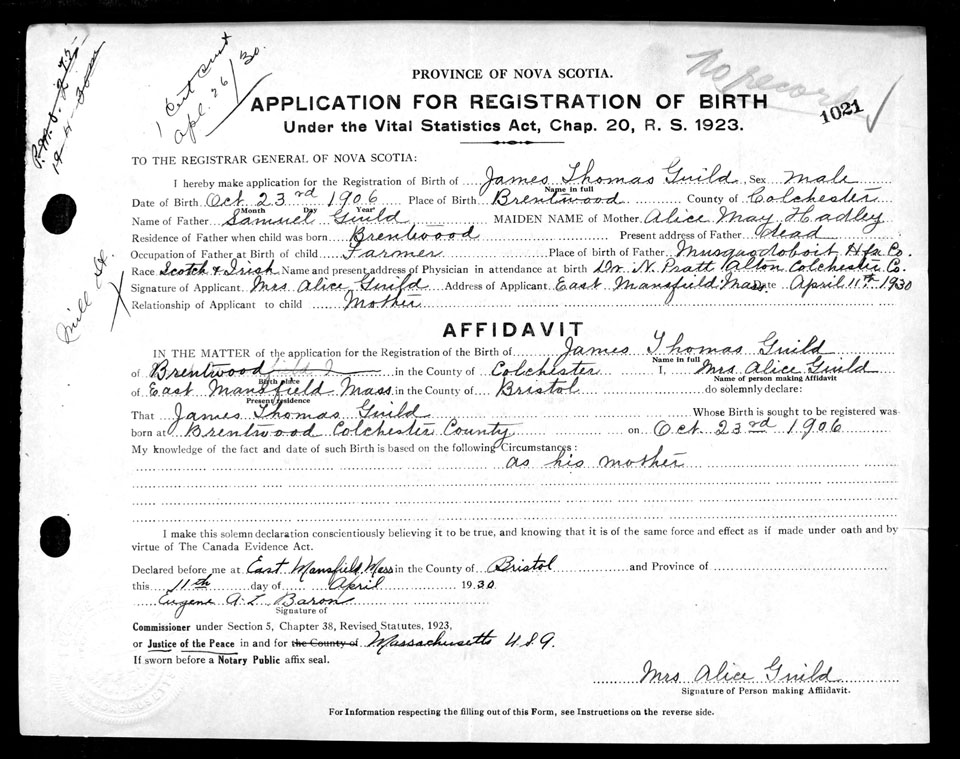 P.M.O. 2.75
19-4-30
1 Cert sent
Apl. 26/30.
no record
1021
PROVINCE OF NOVA SCOTIA.
APPLICATION FOR REGISTRATION OF BIRTH
Under the Vital Statistics Act, Chap. 20, R. S. 1923.
TO THE REGISTRAR GENERAL OF NOVA SCOTIA:
I hereby make application for the Registration of Birth of James Thomas Guild Sex Male
Name in full
Date of Birth Oct 23rd 1906 Place of Birth Brentwood County of Colchester
Month Day Year
Name of Father Samuel Guild MAIDEN NAME of Mother Alice May Hadley
Residence of Father when child was born Brentwood Present address of Father dead
Occupation of Father at Birth of child Farmer Place of birth of Father Musquodoboit Hfx Co.
Race Scotch & Irish Name and present address of Physician in attendance at birth Dr. N. Pratt Alton Colchester Co.
Signature of Applicant Mrs Alice Guild Address of Applicant East Mansfield Mass. Date April 11th 1930
Relationship of Applicant to child Mother
Mill St.
AFFIDAVIT
IN THE MATTER of the application for the Registration of the Birth of James Thomas Guild
Name in full
of Brentwood in the County of Colchester I, Mrs. Alice Guild
Birth place Name of person making Affidavit
of East Mansfield Mass in the County of Bristol do solemnly declare:
Present residence
That James Thomas Guild Whose Birth is sought to be registered was
born at Brentwood Colchester County on Oct. 23rd 1906
My knowledge of the fact and date of such Birth is based on the following Circumstances:
as his mother
I make this solemn declaration conscientiously believing it to be true, and knowing that it is of the same force and effect as if made under oath and by
virtue of The Canada Evidence Act.
Declared before me at East Mansfield Mass in the County of Bristol and Province of
this 11th day of April 1930
Eugene A. L. Baron
Signature of
Commissioner under Section 5, Chapter 38, Revised Statutes, 1923,
or Justice of the Peace in and for the County of Massachusetts U.S.A.
If sworn before a Notary Public affix seal.
Mrs Alice Guild
Signature of Person making Affidavit.
For Information respecting the filling out of this Form, see Instructions on the reverse side.